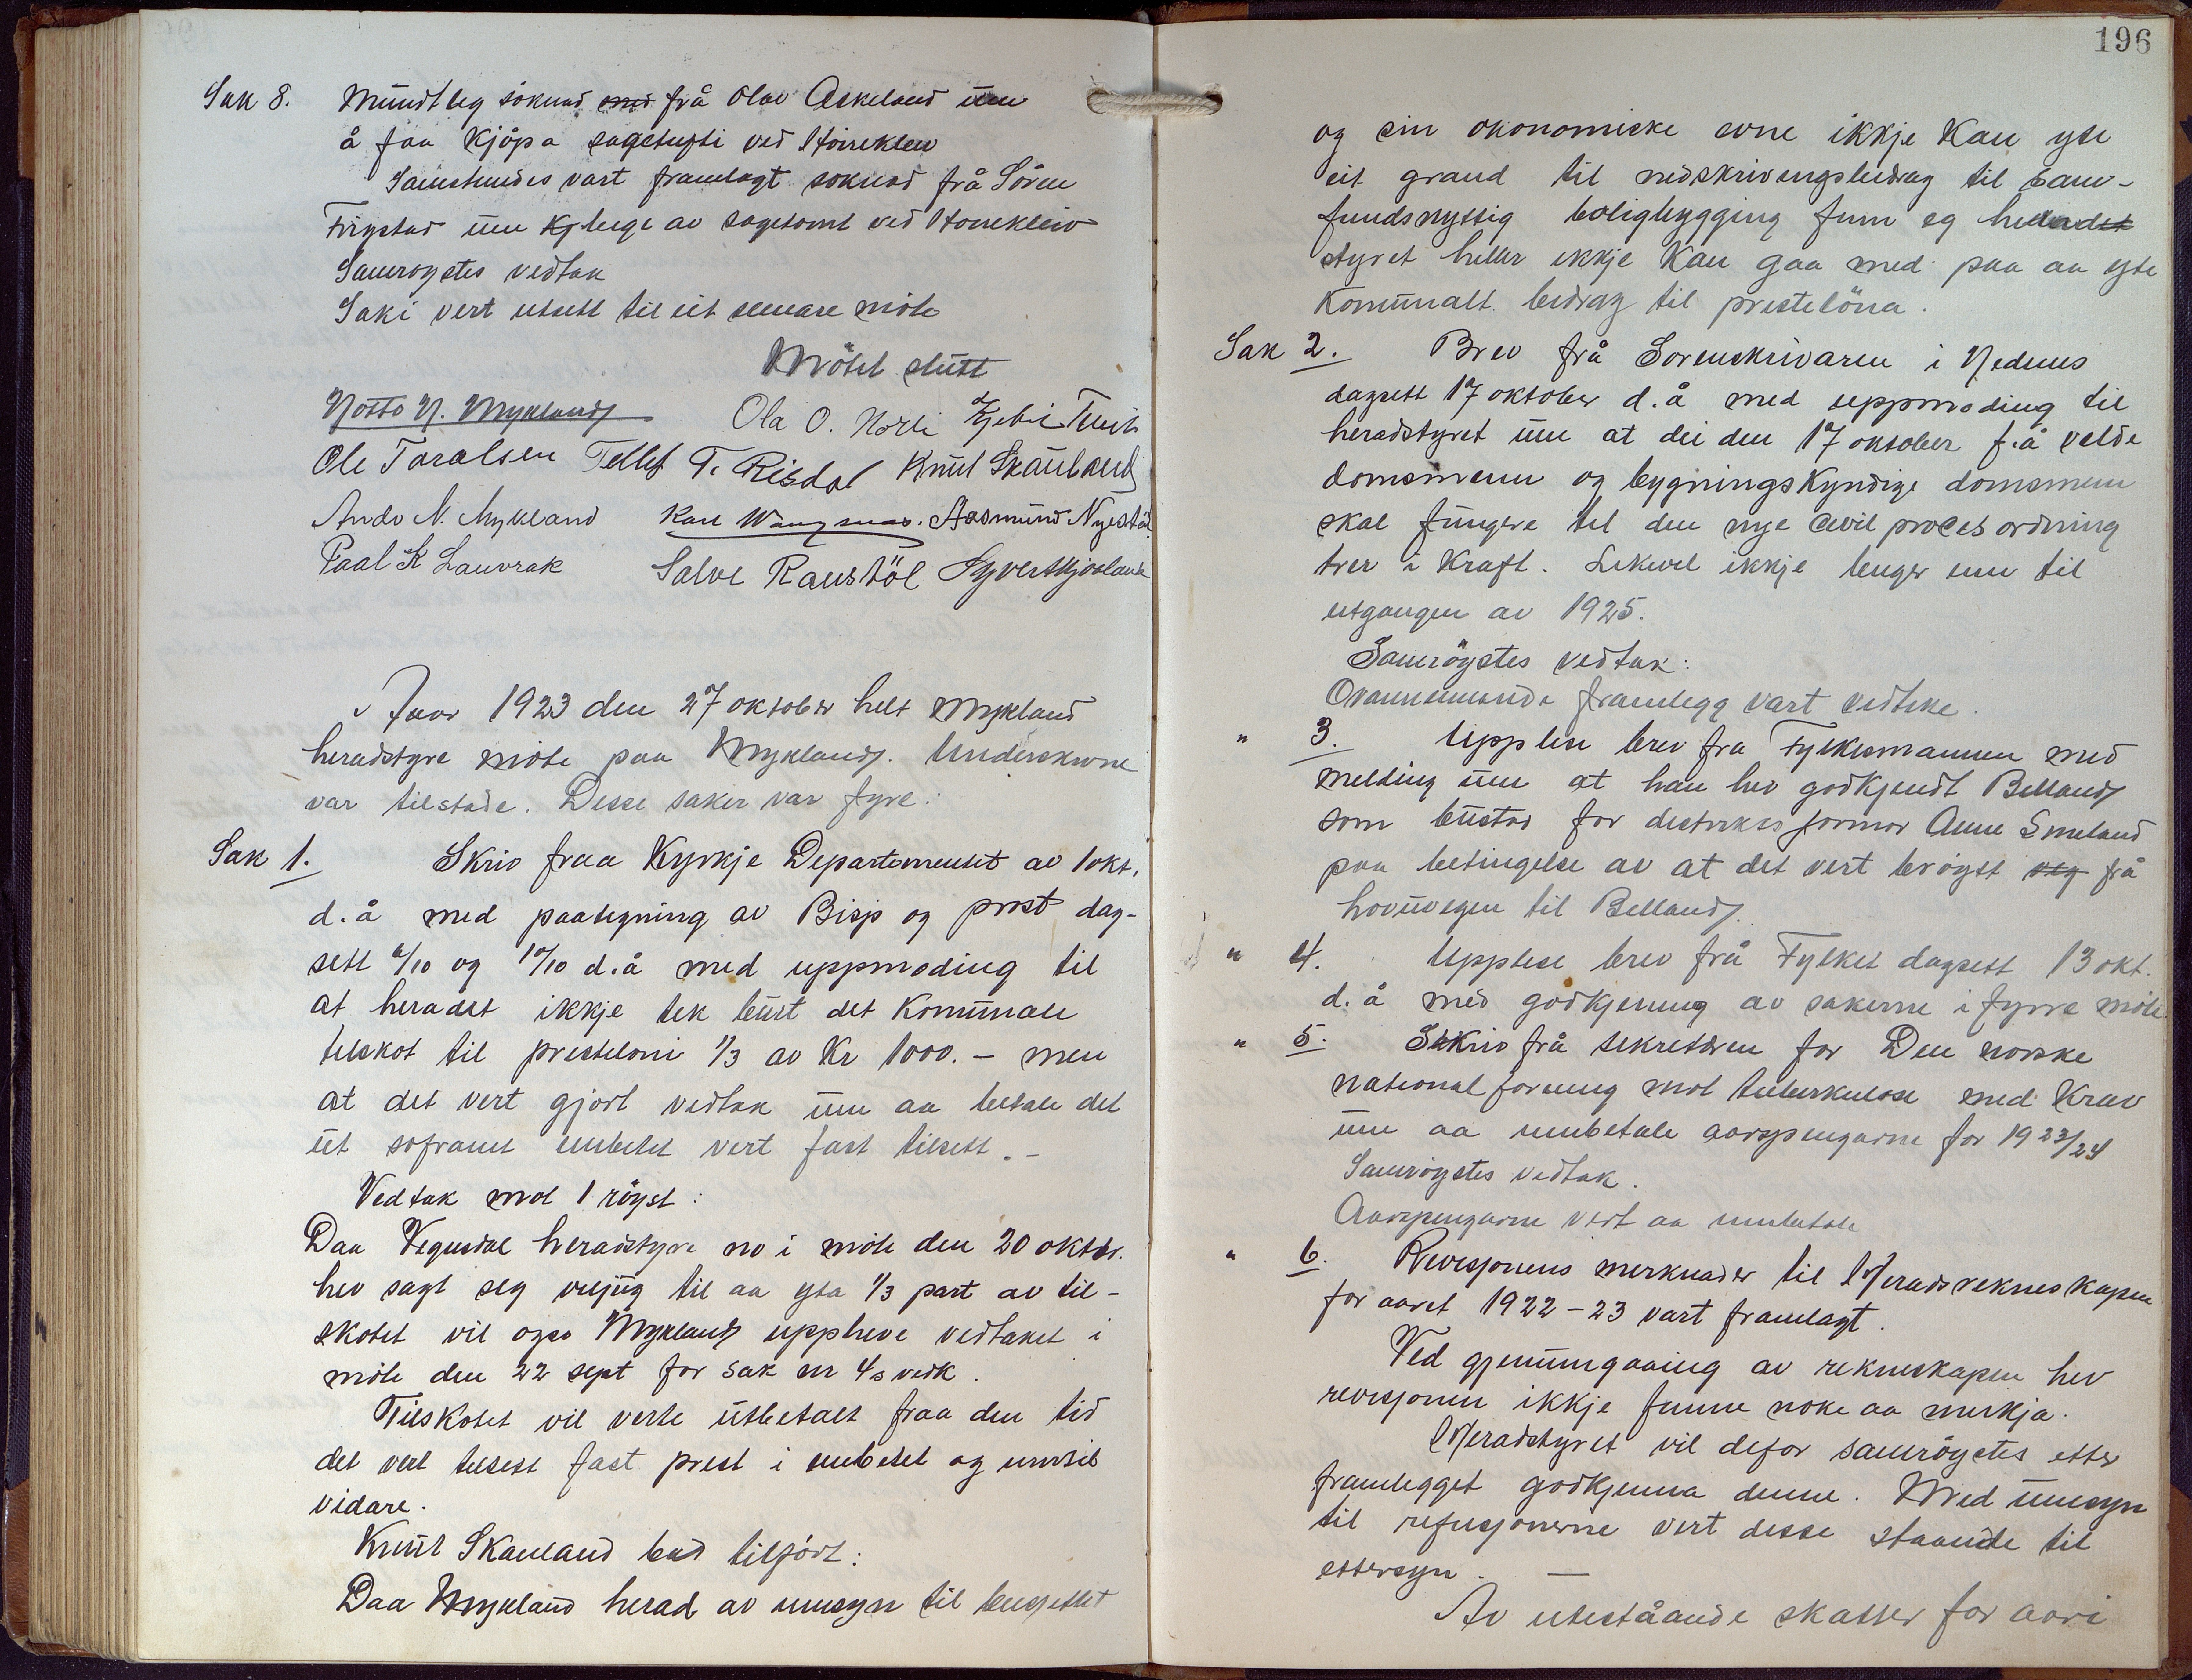 Sak 8. Mündtleg söknad med frå Olav Askeland üm
å faa kjöpa sagetufti ved Hoirekleiv
Samstundes vart framlagt söknad frå Sören
Frigstad üm kj leige av sagetomt ved Hoirekleiv
Samrøystes vedtak
Saki vert utsett til eit seinare möte
Mötet slütt
Notto N. Mykland Ola O. Norli
Ole Taraldsen Tellef T. Risdal Knut Skaüland
Ando N. Mykland Karl Wangsnes. Aasmund Nystöl
Paal K Lauvrak Salve Raustöl Syvert Mjaaland
Aar 1923 den 27 oktober helt Mykland
heradstyre möte paa Mykland. Underskrivne
var tilstade. Desse saker var fyre:
Sak 1. Skriv fraa Kyrkje Departementet av 1 okt.
d.å med paategning av Bisp og prost dag-
sett 6/10 og 10/10 d.å med uppmoding til
at heradet ikkje tek bürt det kommunale
tilskot til presteloni 1/3 av Kr 1000.- men
at det vert gjort vedtak üm aa betale det
üt soframt embetet vert fast tilsett.-
Vedtak mot 1 röyst:
Daa Vegusdal heradstyre no i möte den 20 oktbr.
hev sagt seg veljüg til aa yta 1/3 part av til-
skotet vil ogso Mykland uppheve vedtaket i
möte den 22 sept for sak nr 4s vedk.
Tilskotet vil verte ütbetalt fraa den tid
det vert tilsett fast prest i embetet og inntil
vidare.
Knüt Skauland bad tilfört:
Daa Mykland herad av umsyn til büsjettet
196
og sin okonomiske evne ikkje kan yte
eit grand til nedskrivingsbidrag til sam-
fundsnyttig boligbygging finn eg heradet
styret heller ikkje kan gaa med paa aa yte
kommunalt bidrag til prestelöna.
Sak 2. Brev frå Sorenskrivaren i Nedenes
dagsett 17 oktober d.å med uppmoding til
heradstyret üm at dei den 17 oktober f.å valde
domsmenn og bygningskyndige domsmenn
skal füngere til den nye civilprocesordning
trer i kraft. Likevel ikkje lenger enn til
utgangen av 1925.
Samröystes vedtak:
Ovannemnde framlegg vart vedteke.
" 3. Upplese brev fra Fylkesmannen med
melding üm at han hev godkjendt Belland
som büstad for distriktsjormor Anne Smeland
paa betingelse av at det vert bröytt veg frå
hovüvegen til Belland.
" 4. Upplese brev frå Fylket dagsett 13 okt.
d.å med godkjening av sakerne i fyrre möte
" 5. Skriv frå sekretæren for Den norske
nationalforening mot tuberkulose med krav
üm aa innbetale aarspengarne for 1923/24
Samröystes vedtak.
Aarspengarne vert aa innbetale
" 6. Revisjonens merknader til Heradsrekneskapen
for aaret 1922-23 vart framlagt.
Ved gjenumgaaing av rekneskapen hev
revisjonen ikkje funne noke aa merkja.
Heradstyret vil defor samröystes etter
framlegget godkjenna denne. Med ümsyn
til refusjonerne vert desse staande til
ettersyn. —
Av uteståande skatter for aari